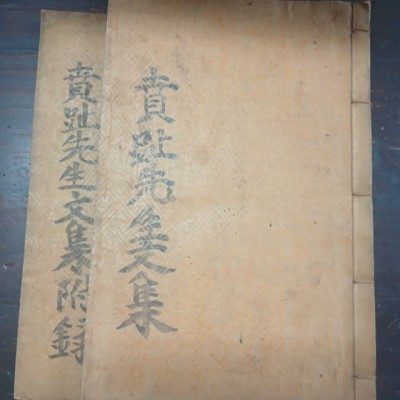 賁趾先生文集
賁趾先生文集附錄